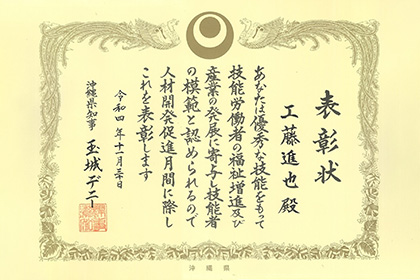 表彰状
工藤進也殿
あなたは優秀な技能をもって
技能労働者の福祉増進及び
産業の発展に寄与し技能者
の模範と認められるので
人材開発促進月間に際し
これを表彰します
令和四年十一月三十日
沖縄県知事 玉城デニー
沖縄県